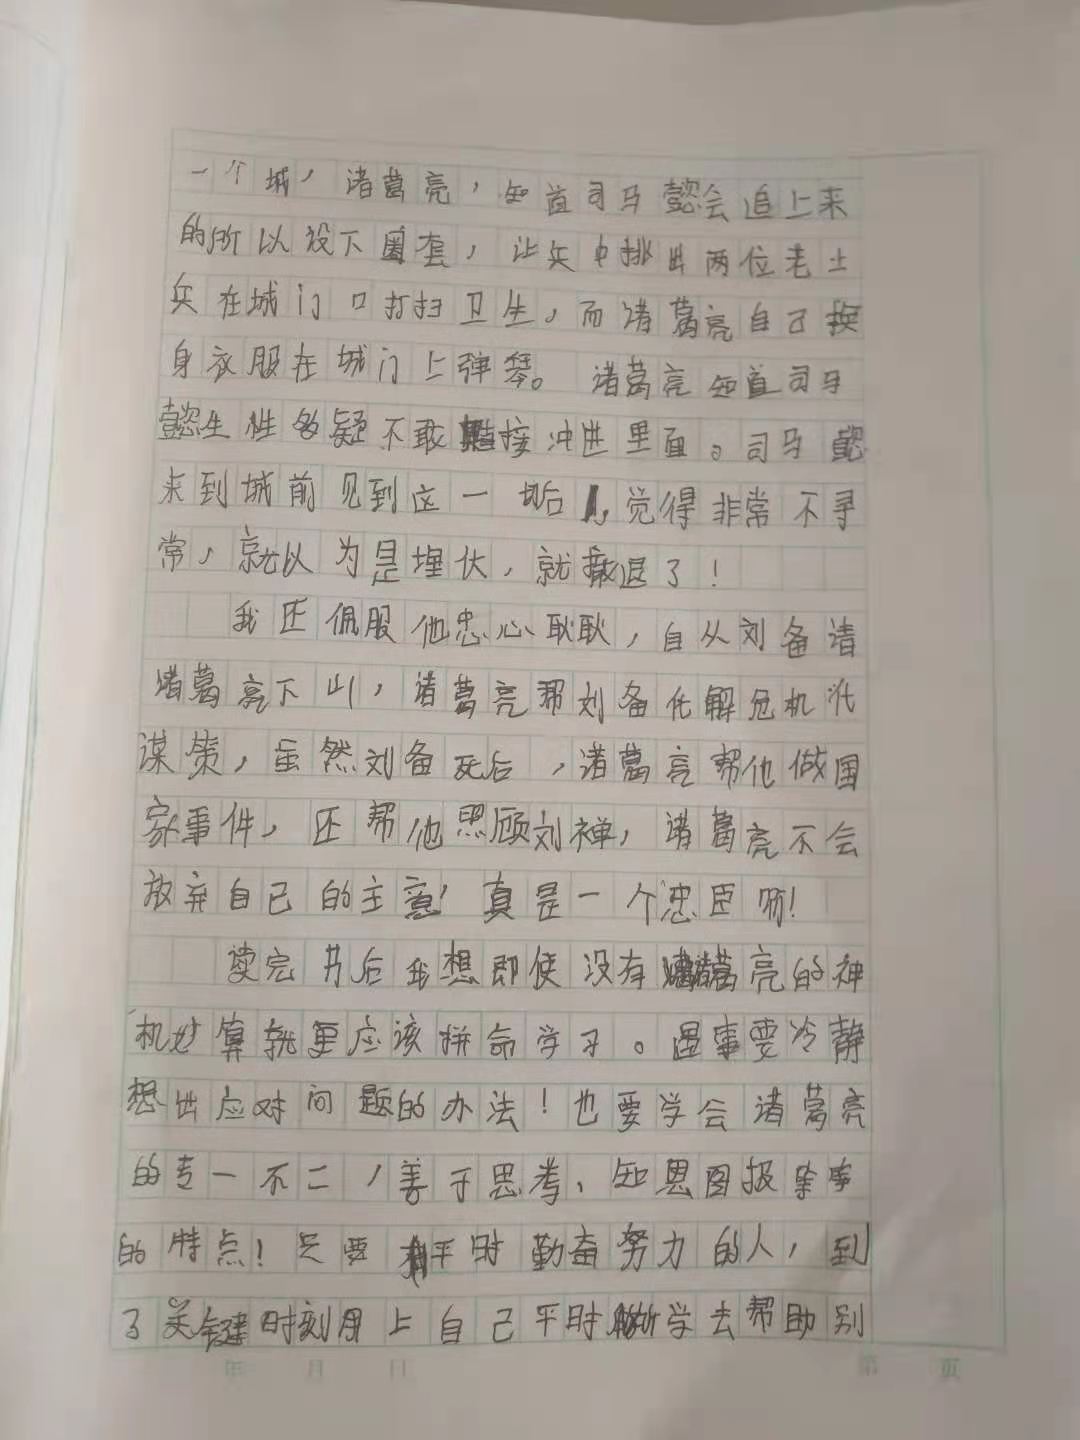 一个城，诸葛亮，知道司马懿会追上来
的所以设下圈套，让兵中挑出两位老士
兵在城门口打扫卫生，而诸葛亮自己换
身衣服在城门上弹琴。诸葛亮知道司马
懿生性多疑不敢直接冲进里面。司马懿
来到城前见到这一切后，觉得非常不寻
常，就以为是埋伏，就撤退了！
我还佩服他忠心耿耿，自从刘备请
诸葛亮下山，诸葛亮帮刘备化解危机
谋策，虽然刘备死后，诸葛亮帮他做国
家事件，还帮他照顾刘禅，诸葛亮不会
放弃自己的主意，真是一个忠臣啊！
读完书后我想即使没有诸葛亮的神
机妙算就更应该拼命学习。遇事要冷静
想出应对问题的办法！也要学会诸葛亮
的专一不二，善于思考、知恩图报
的特点！只要平时勤奋努力的人，到
了关键时刻用上自己平时所学去帮助别
年 月 日 第 页